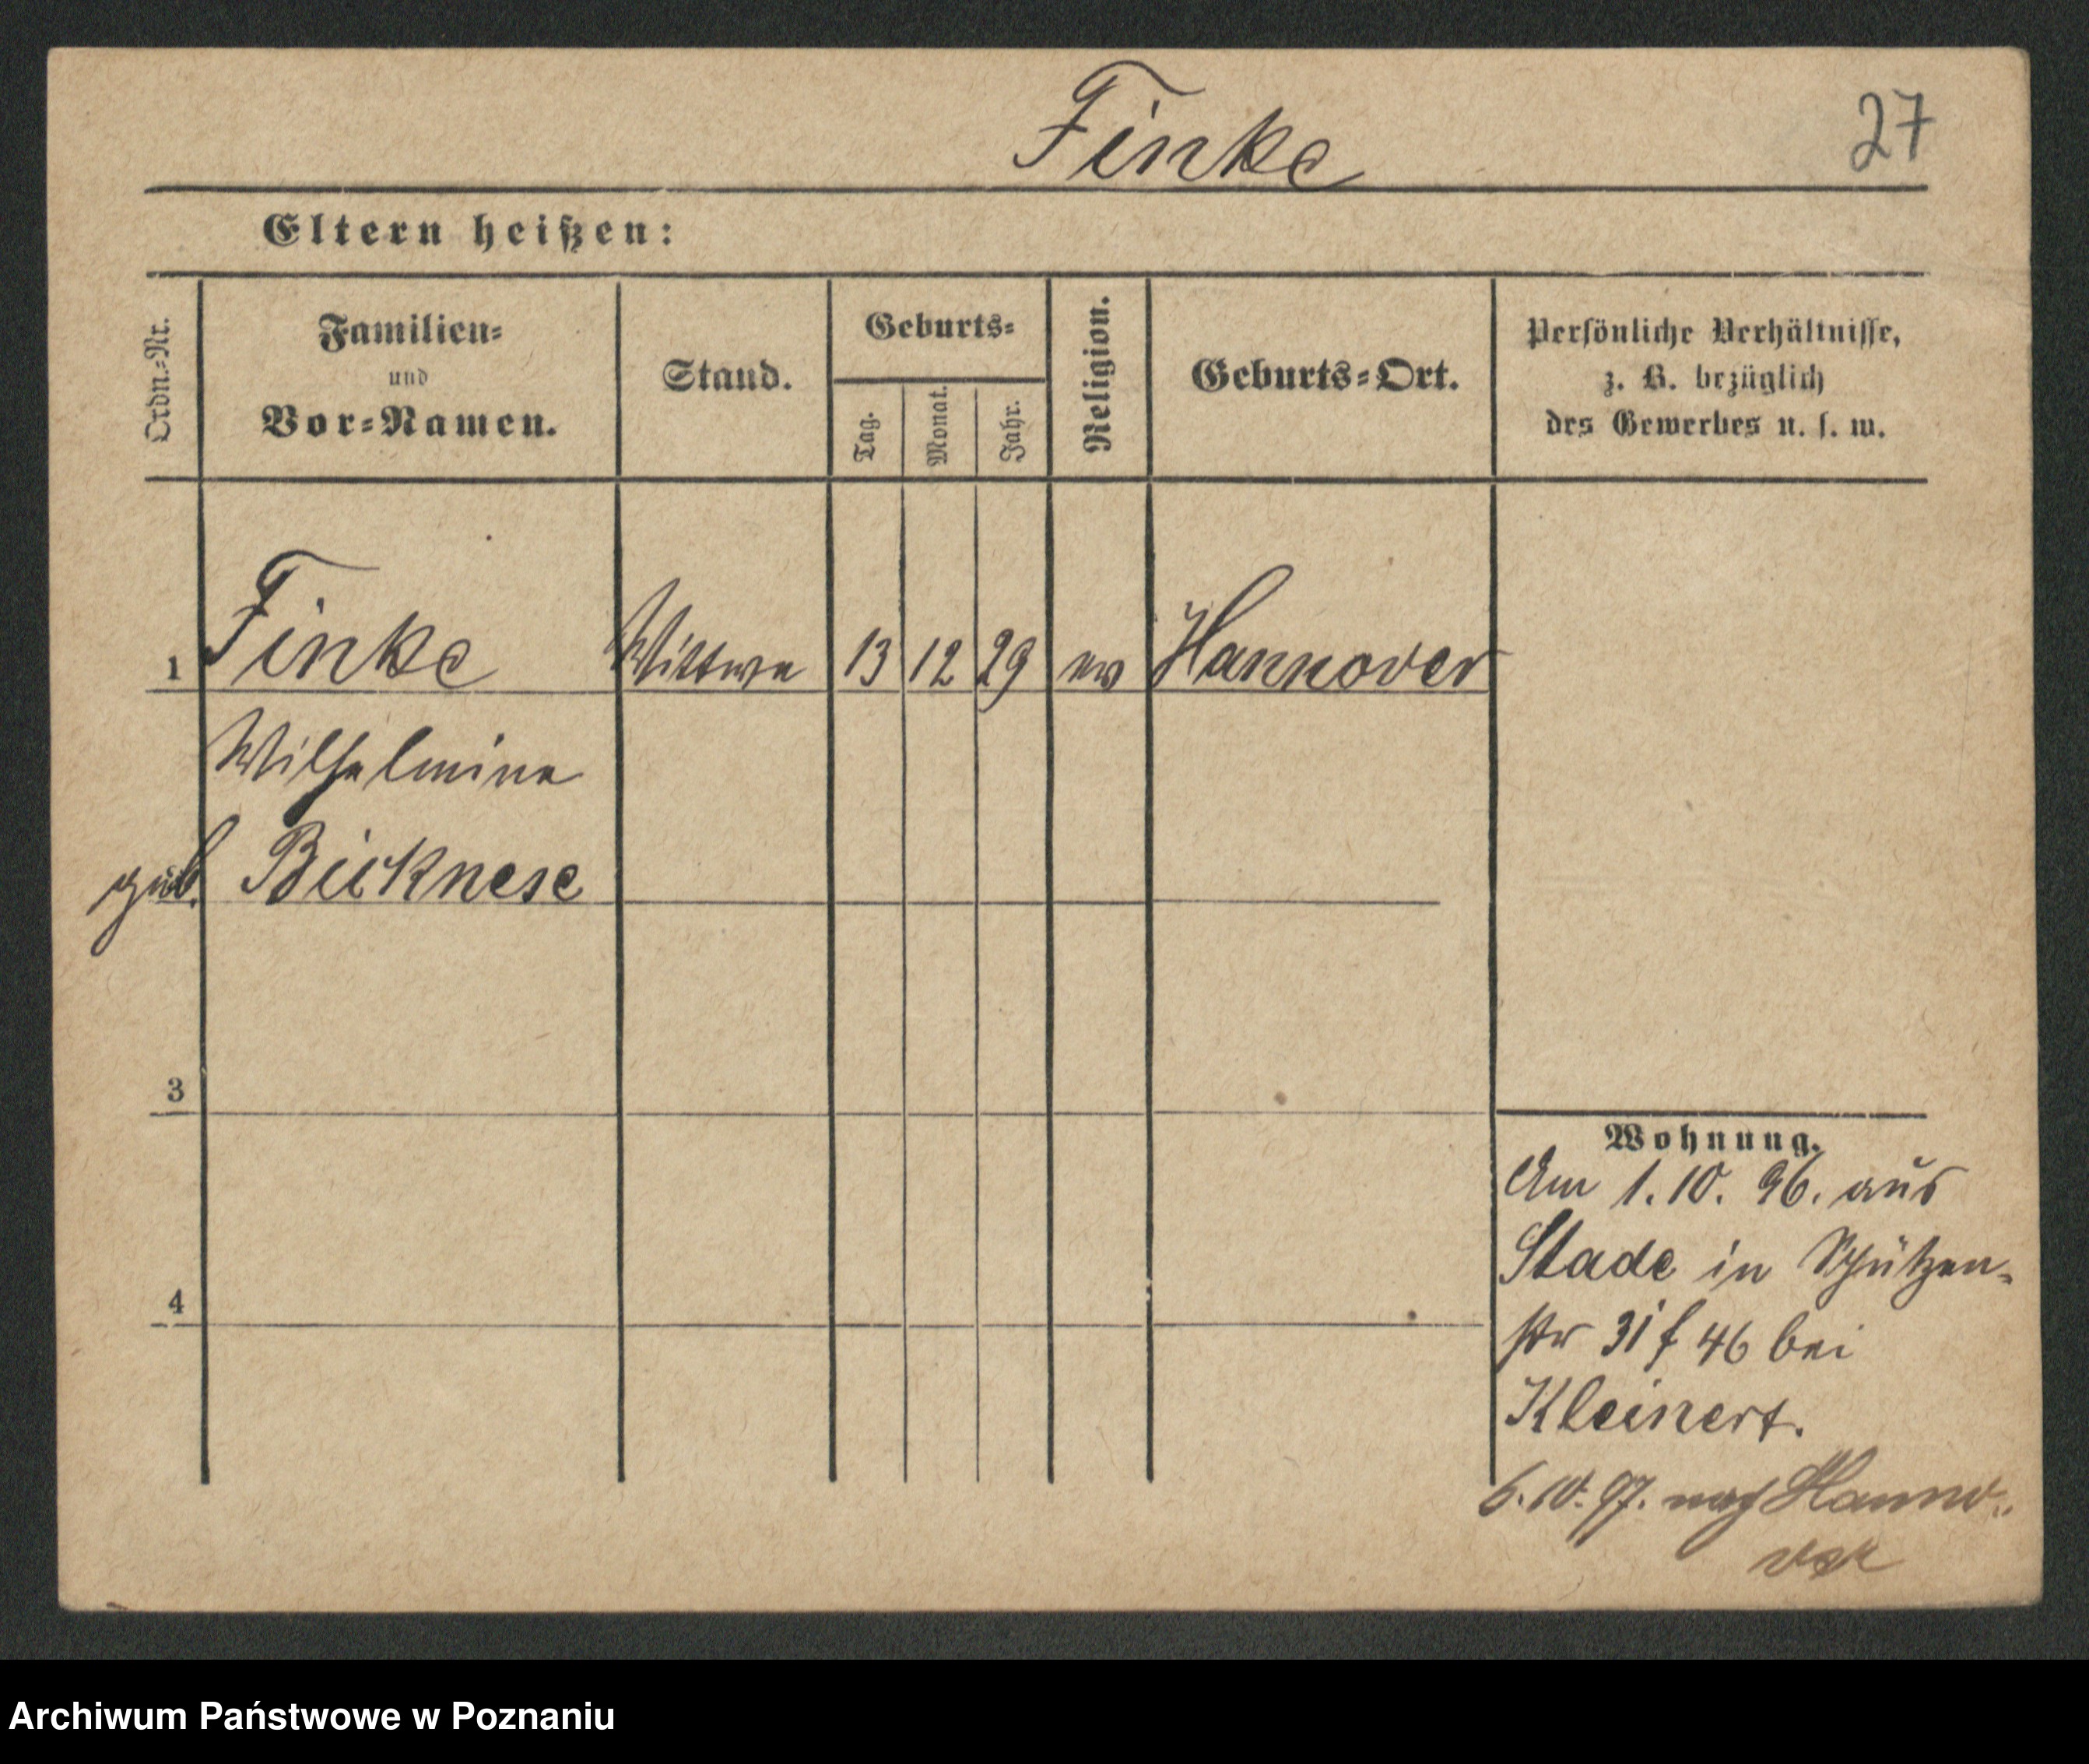 Finke
27
Eltern heißen:
Ordn.-Nr.
Familien-
und
Vor-Namen.
Stand.
Geburts-
Tag.
Monat.
Jahr.
Religion.
Geburts-Ort.
Persönliche Verhältnisse,
z. B. bezüglich
des Gewerbes u. s. w.
1 Finke Wittwe 13 12 29 ev Hannover
Wilhelmine
geb. Bicknese
3
4
Wohnung.
Am 1.10.96. aus
Stade in Schützen-
str 31 46 bei
Kleinert.
6.10.97. nach Hanno-
ver
Archiwum Państwowe w Poznaniu